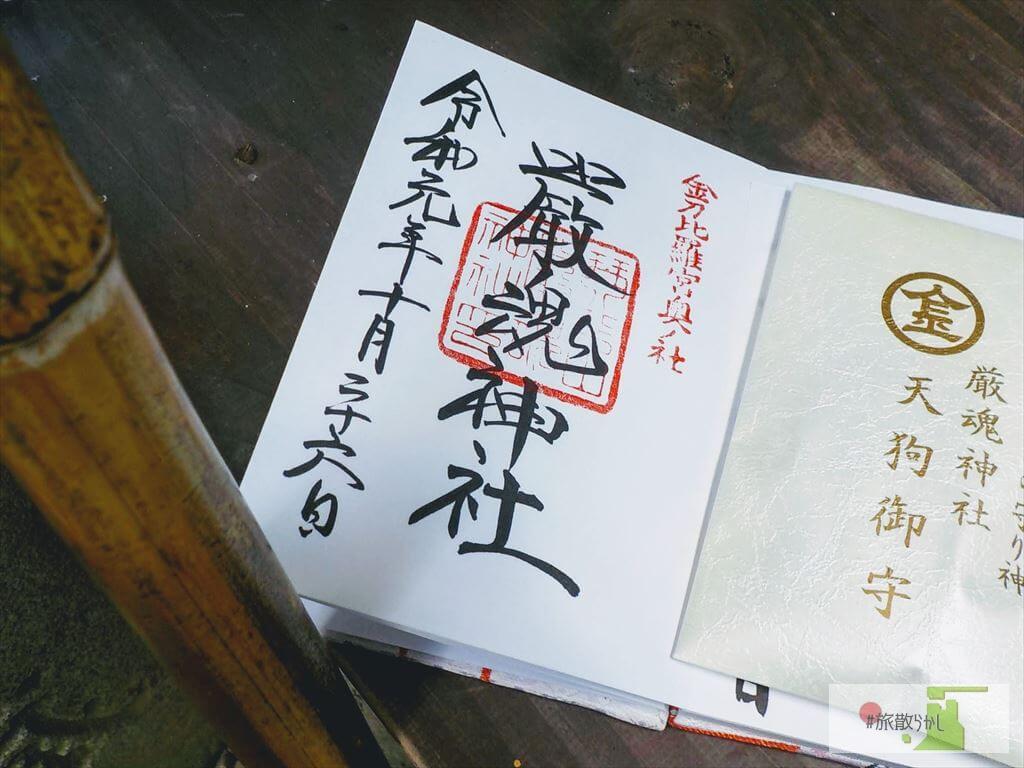 金刀比羅宮奥社
厳魂神社
令和元年十月二十六日
金
守り神
厳魂神社
天狗御守
日
#旅散らかし